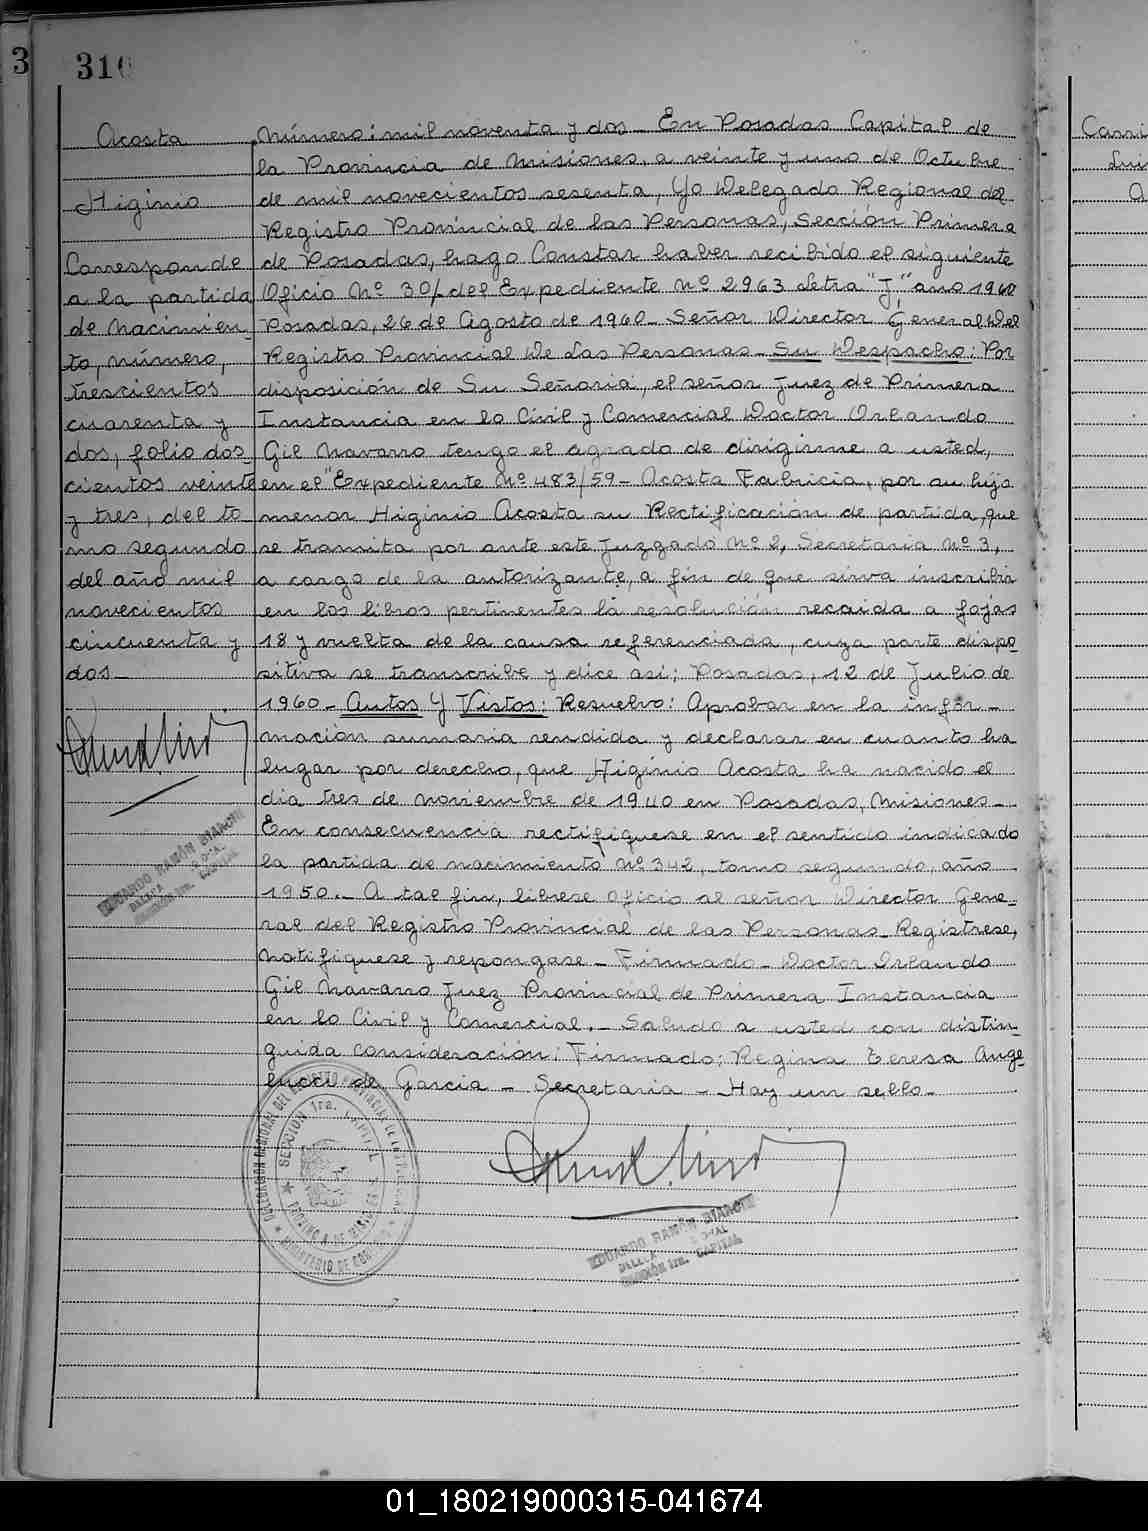 3
310
Acosta
Higinio
Corresponde
a la partida
de nacimien
to, número,
trescientos
cuarenta y
dos, folio dos
cientos veinte
y tres, del to
mo segundo
del año mil
novecientos
cincuenta y
dos_
EDUARDO RAMÓN BIANCHI
SECCIÓN 1ra. CAPITAL
Número: mil noventa y dos_ En Posadas Capital de
la Provincia de Misiones, a veinte y uno de Octubre
de mil novecientos sesenta, Yo Delegado Regional del
Registro Provincial de las Personas, Sección Primera
de Posadas, hago Constar haber recibido el siguiente
Oficio Nº 30/ del Expediente Nº 2963 Letra "J", año 1960
Posadas, 26 de Agosto de 1960_ Señor Director General Del
Registro Provincial De Las Personas_ Su Despacho: Por
disposición de Su Señoria, el señor Juez de Primera
Instancia en lo Civil y Comercial Doctor Orlando
Gil Navarro tengo el agrado de dirigirme a usted,
en el "Expediente Nº 483/59_ Acosta Fabricia, por su hijo
menor Higinio Acosta su Rectificación de partida, que
se tramita por ante este Juzgado Nº 2, Secretaria Nº 3,
a cargo de la autorizante, a fin de que sirva inscribir
en los libros pertinentes la resolución recaida a fojas
18 y vuelta de la causa referenciada, cuya parte dispo
sitiva se transcribe y dice asi; Posadas, 12 de Julio de
1960_ Autos Y Vistos: Resuelvo: Aprobar en la infor_
mación sumaria rendida y declarar en cuanto ha
lugar por derecho, que Higinio Acosta ha nacido el
dia tres de noviembre de 1940 en Posadas, Misiones_
En consecuencia rectifiquese en el sentido indicado
la partida de nacimiento Nº 342, tomo segundo, año
1950._ A tal fin, librese oficio al señor Director Gene_
ral del Registro Provincial de las Personas_ Registrese,
Notifiquese y repongase_ Firmado_ Doctor Orlando
Gil Navarro Juez Provincial de Primera Instancia
en lo Civil y Comercial._ Saludo a usted con distin_
guida consideración; Firmado; Regina Teresa Ange
lucci de Garcia_ Secretaria_ Hay un sello_
SECCION 1ra. CAPITAL
EDUARDO RAMÓN BIANCHI
SECCIÓN 1ra. CAPITAL
01_180219000315-041674